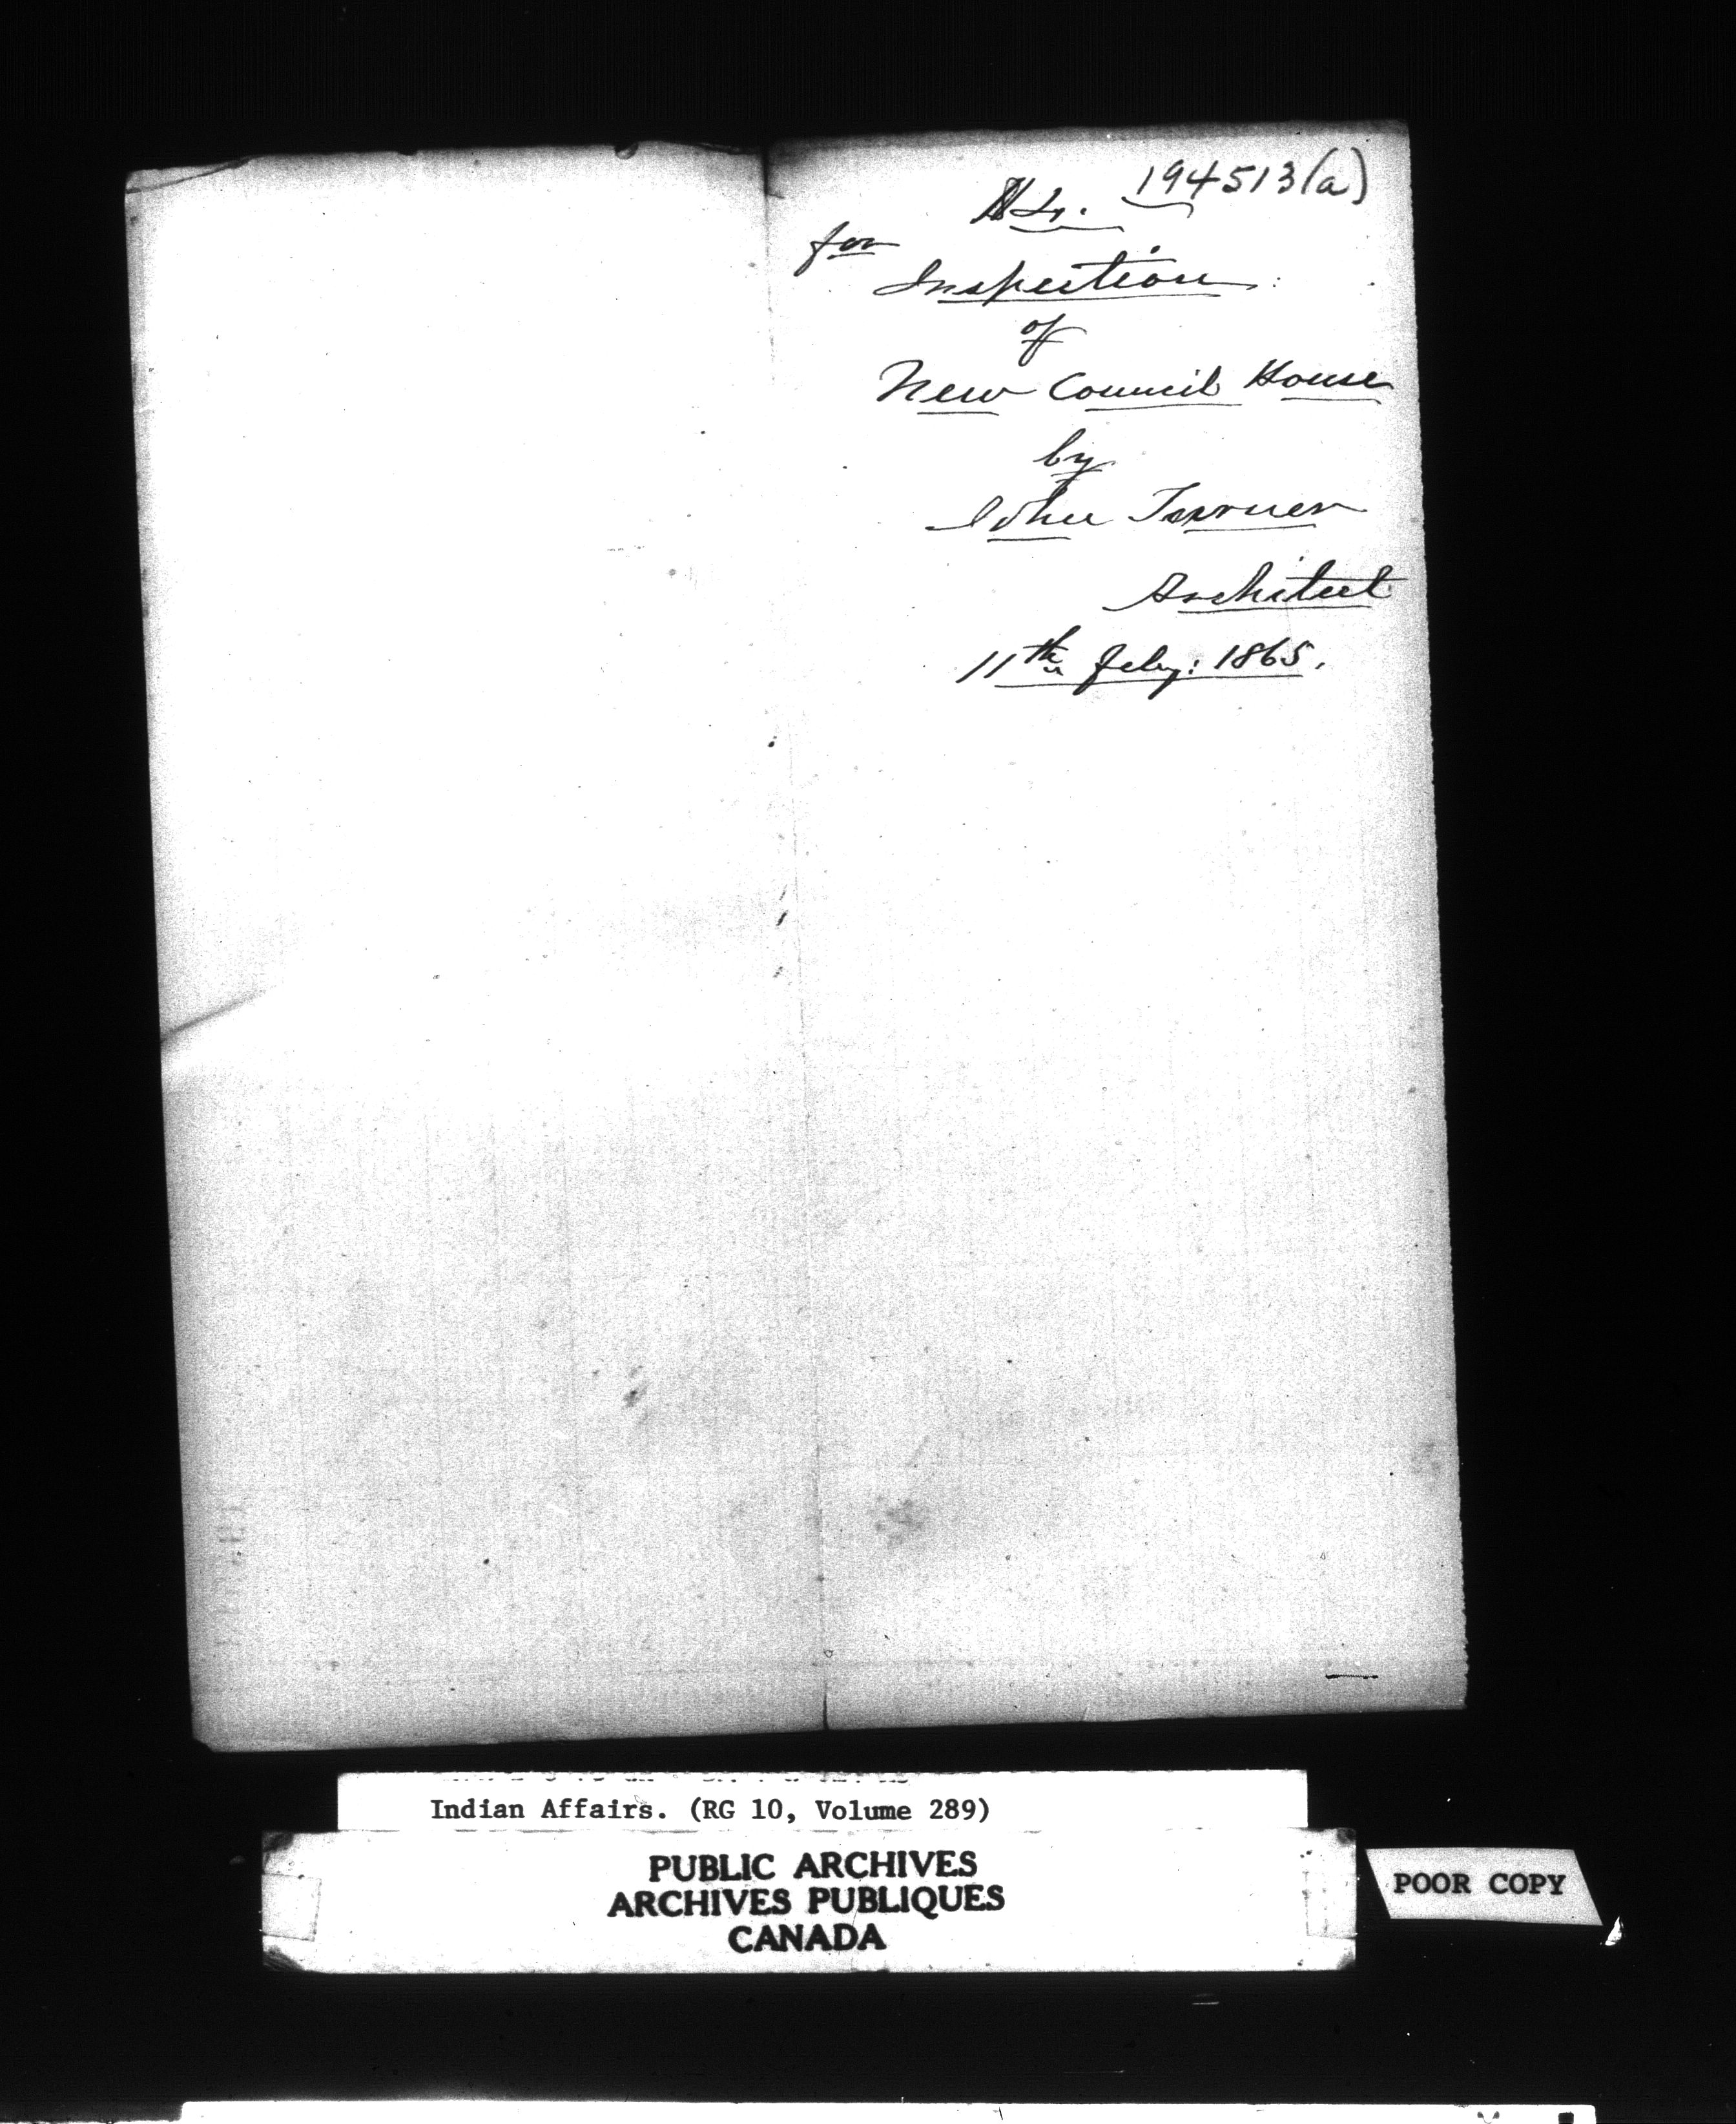 194513(a)
for
Inspection
of
New Council House
by
John Turner
Architect
11th Feby: 1865.
Indian Affairs. (RG 10, Volume 289)
PUBLIC ARCHIVES
ARCHIVES PUBLIQUES
CANADA
POOR COPY